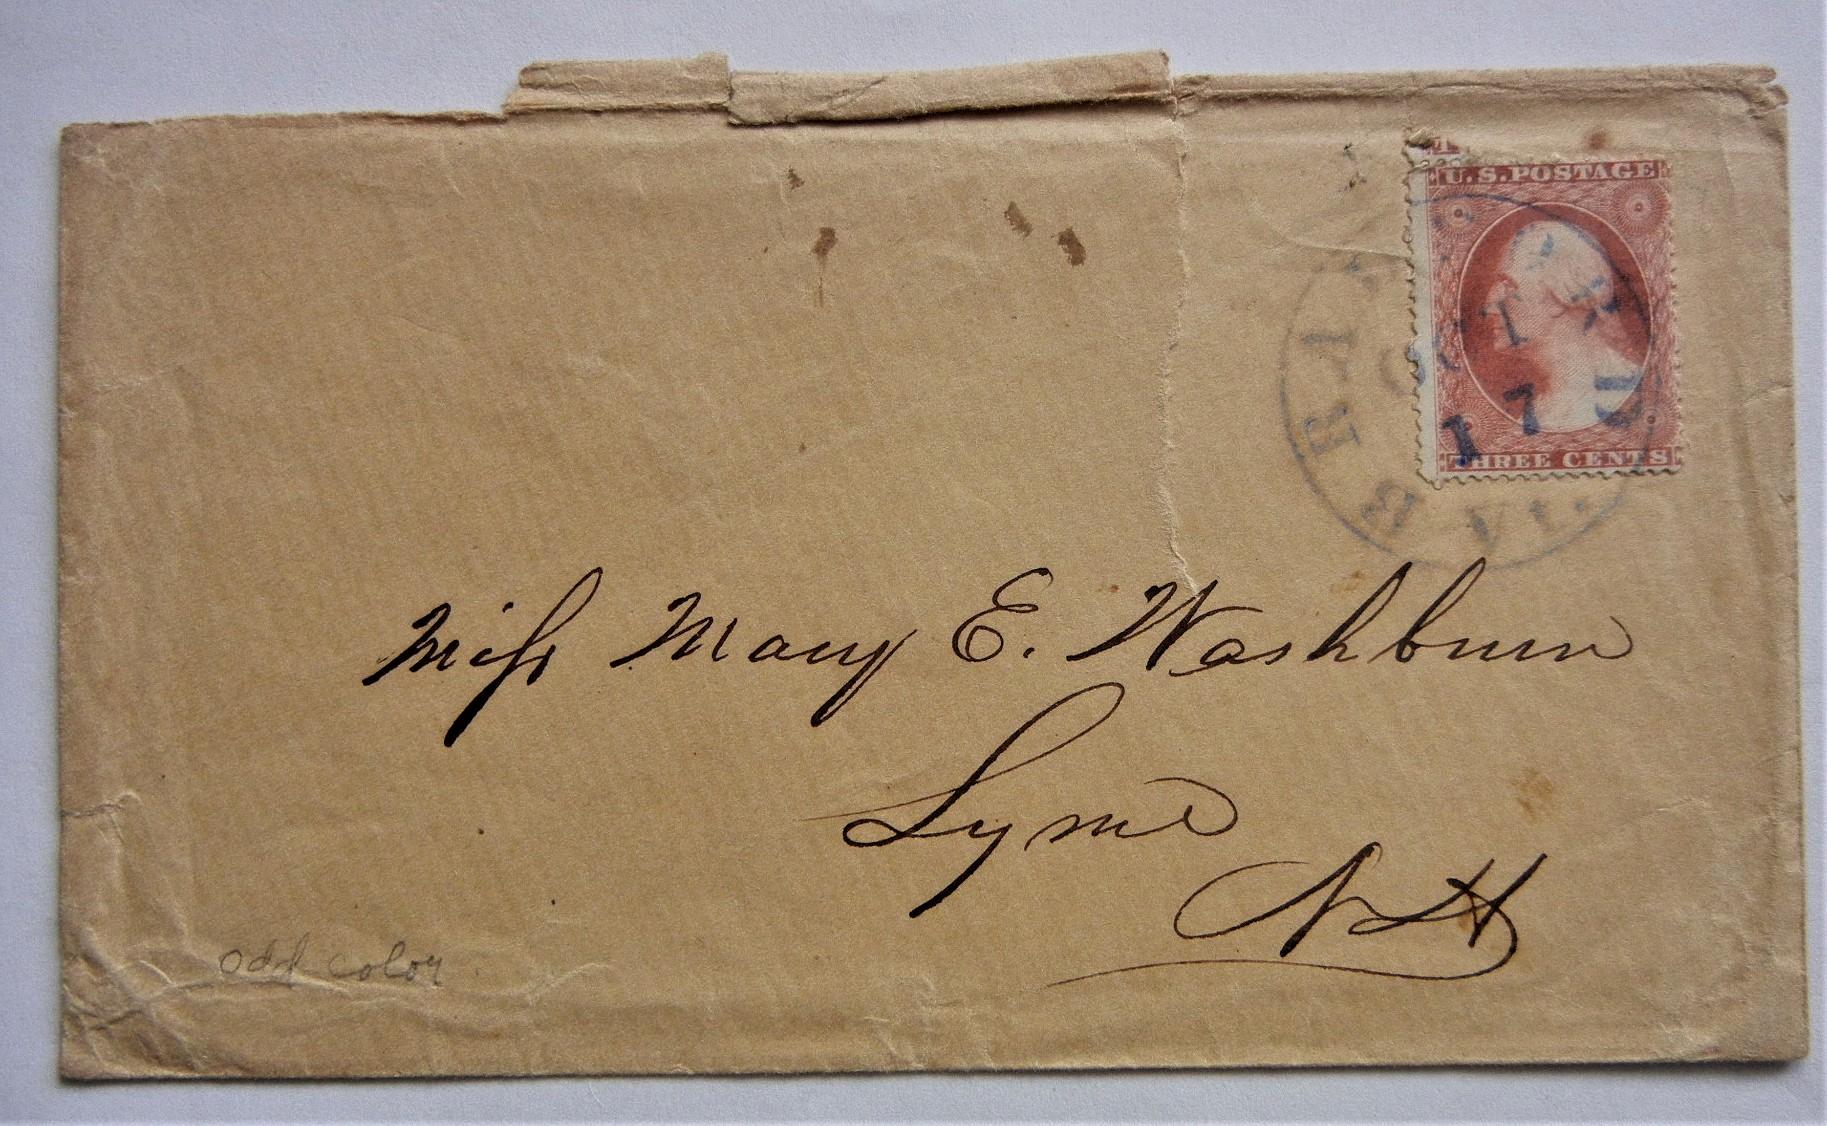 U.S.POSTAGE
BRADFORD
OCT
17
VT.
THREE CENTS
Miſs Mary E. Washburn
Lyme
NH
odd color